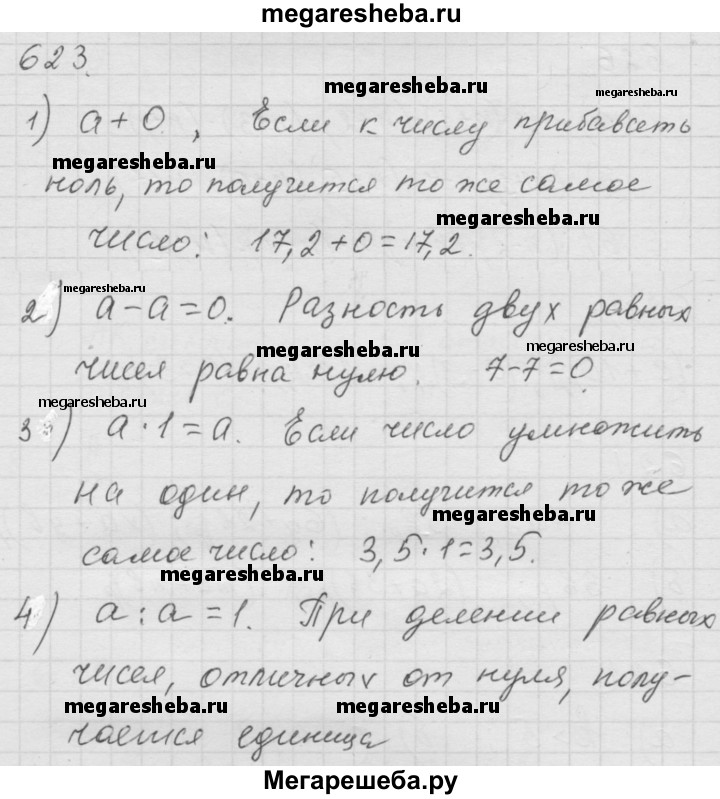 megaresheba.ru
623.
megaresheba.ru
1) a+0, Если к числу прибавить
megaresheba.ru
ноль, то получится то же самое
megaresheba.ru
число: 17,2+0=17,2.
megaresheba.ru
2) a-a=0. Разность двух равных
megaresheba.ru
megaresheba.ru
чисел равна нулю. 7-7=0
megaresheba.ru
3) a·1=a. Если число умножить
на один, то получится то же
megaresheba.ru
самое число: 3,5·1=3,5.
megaresheba.ru
4) a:a=1. При делении равных
чисел, отличных от нуля, полу-
megaresheba.ru
megaresheba.ru
чается единица
Мегарешеба.ру